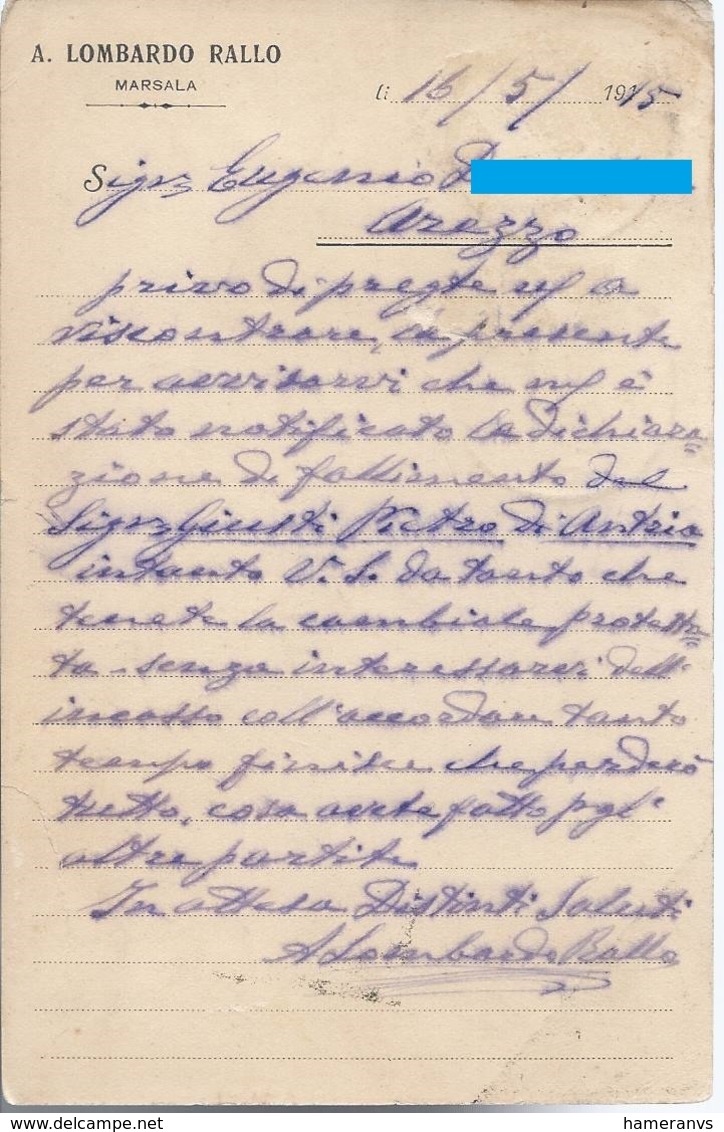 A. LOMBARDO RALLO
MARSALA
li 16/5/ 1915
Sigr Eugenio D
Arezzo
privo di pregte a
riscontrare, la presente
per avvisarvi che è
stato notificato la dichiara=
zione di fallimento del
Sigr Giusti Pietro di Antria
intanto V. S. da tanto che
tenete la cambiale protesta=
ta senza interessarvi dell'
incasso coll'accordare tanto
tempo finisce che perderò
tutto, cosa avete fatto pgl'
altre partite
In attesa Distinti Saluti
ALombardo Rallo
hameranvs